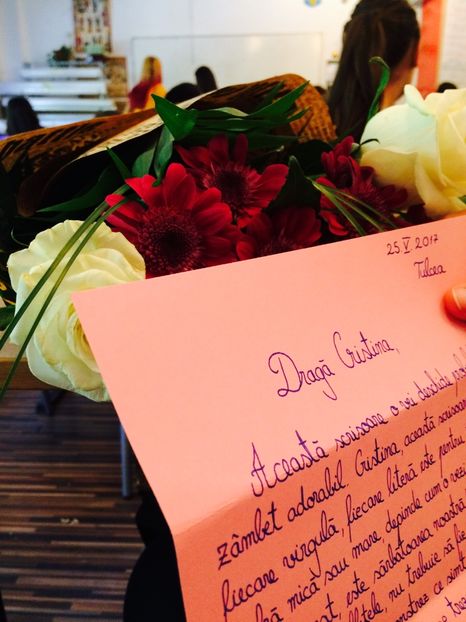 25.V.2017
Tulcea
Dragă Cristina,
Această scrisoare o vei deschide
zâmbet adorabil. Cristina, această scrisoare
fiecare virgulă, fiecare literă este pentru
mică sau mare, depinde cum o vezi
este sărbătoarea noastră
nu trebuie să fie
ce simt